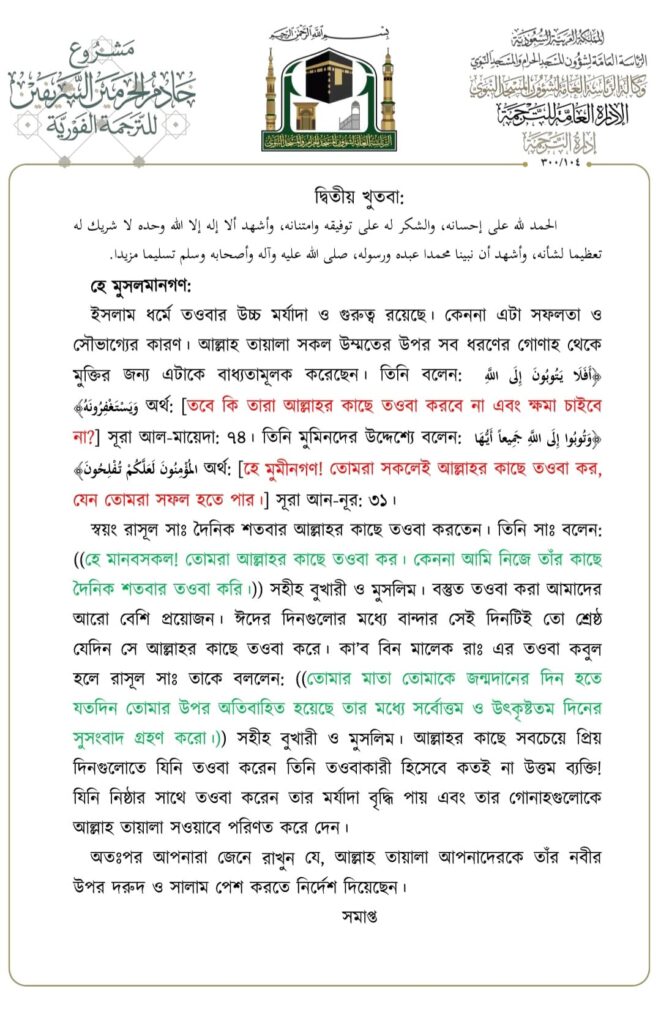 بسم الله الرحمن الرحيم
المملكة العربية السعودية
الرئاسة العامة لشؤون المسجد الحرام والمسجد النبوي
وكالة الرئاسة العامة لشؤون المسجد النبوي
الإدارة العامة للترجمة
إدارة الترجمة
٣٠٠/١٠٤
مشروع
خادم الحرمين الشريفين
للترجمة الفورية
الرئاسة العامة لشؤون المسجد الحرام والمسجد النبوي
দ্বিতীয় খুতবা:
الحمد لله على إحسانه، والشكر له على توفيقه وامتنانه، وأشهد ألا إله إلا الله وحده لا شريك له
تعظيما لشأنه، وأشهد أن نبينا محمدا عبده ورسوله، صلى الله عليه وآله وأصحابه وسلم تسليما مزيدا.
হে মুসলমানগণ:
ইসলাম ধর্মে তওবার উচ্চ মর্যাদা ও গুরুত্ব রয়েছে। কেননা এটা সফলতা ও
সৌভাগ্যের কারণ। আল্লাহ তায়ালা সকল উম্মতের উপর সব ধরণের গোণাহ থেকে
মুক্তির জন্য এটাকে বাধ্যতামূলক করেছেন। তিনি বলেন: ﴿أَفَلَا يَتُوبُونَ إِلَى اللَّهِ
وَيَسْتَغْفِرُونَهُ﴾ অর্থ: [তবে কি তারা আল্লাহর কাছে তওবা করবে না এবং ক্ষমা চাইবে
না?] সূরা আল-মায়েদা: ৭৪। তিনি মুমিনদের উদ্দেশ্যে বলেন: ﴿وَتُوبُوا إِلَى اللَّهِ جَمِيعاً أَيُّهَا
الْمُؤْمِنُونَ لَعَلَّكُمْ تُفْلِحُونَ﴾ অর্থ: [হে মুমীনগণ! তোমরা সকলেই আল্লাহর কাছে তওবা কর,
যেন তোমরা সফল হতে পার।] সূরা আন-নূর: ৩১।
স্বয়ং রাসূল সাঃ দৈনিক শতবার আল্লাহর কাছে তওবা করতেন। তিনি সাঃ বলেন:
((হে মানবসকল! তোমরা আল্লাহর কাছে তওবা কর। কেননা আমি নিজে তাঁর কাছে
দৈনিক শতবার তওবা করি।)) সহীহ বুখারী ও মুসলিম। বস্তুত তওবা করা আমাদের
আরো বেশি প্রয়োজন। ঈদের দিনগুলোর মধ্যে বান্দার সেই দিনটিই তো শ্রেষ্ঠ
যেদিন সে আল্লাহর কাছে তওবা করে। কা'ব বিন মালেক রাঃ এর তওবা কবুল
হলে রাসূল সাঃ তাকে বললেন: ((তোমার মাতা তোমাকে জন্মদানের দিন হতে
যতদিন তোমার উপর অতিবাহিত হয়েছে তার মধ্যে সর্বোত্তম ও উৎকৃষ্টতম দিনের
সুসংবাদ গ্রহণ করো।)) সহীহ বুখারী ও মুসলিম। আল্লাহর কাছে সবচেয়ে প্রিয়
দিনগুলোতে যিনি তওবা করেন তিনি তওবাকারী হিসেবে কতই না উত্তম ব্যক্তি!
যিনি নিষ্ঠার সাথে তওবা করেন তার মর্যাদা বৃদ্ধি পায় এবং তার গোনাহগুলোকে
আল্লাহ তায়ালা সওয়াবে পরিণত করে দেন।
অতঃপর আপনারা জেনে রাখুন যে, আল্লাহ তায়ালা আপনাদেরকে তাঁর নবীর
উপর দরুদ ও সালাম পেশ করতে নির্দেশ দিয়েছেন।
সমাপ্ত